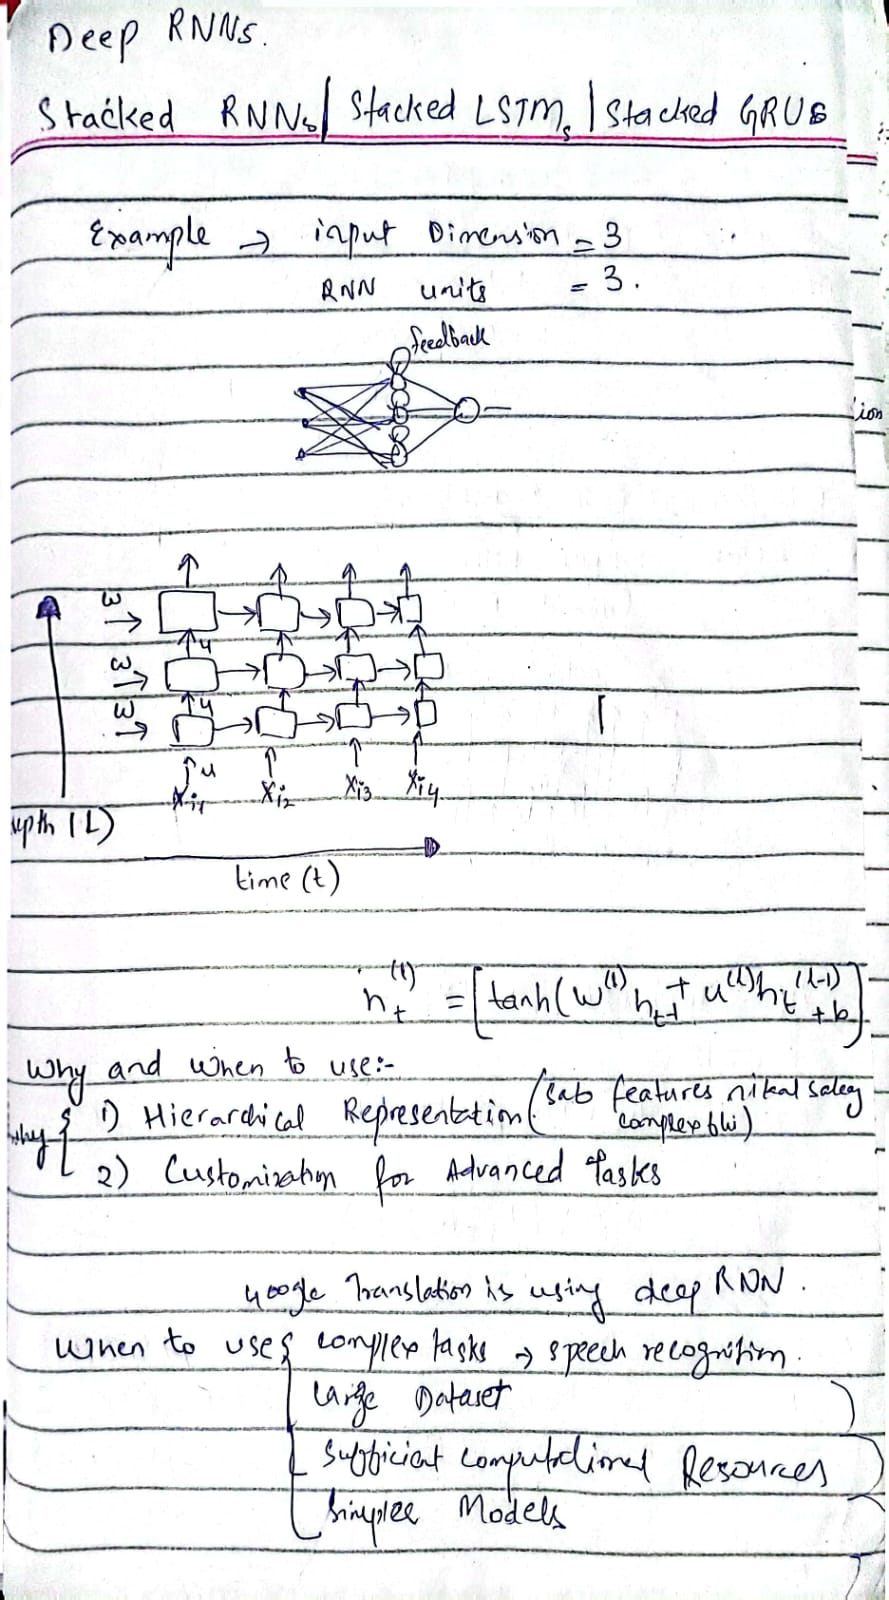 Deep RNNs.
Stacked RNNs / Stacked LSTMs / Stacked GRUs
Example → input Dimension = 3
RNN units = 3.
feedback
ion
w
u
w
u
w
u
Xi1 Xi2 Xi3 Xi4
epth (L)
time (t)
h_t^(l) = [tanh(w^(l) h_t-1 + u^(l) h_t^(l-1) + b]
Why and when to use:-
Why { 1) Hierarchical Representation (sab features nikal
complex bhi)
2) Customization for Advanced Tasks
Google Translation is using deep RNN.
When to use { complex tasks → speech recognition.
Large Dataset
Sufficient Computational Resources
Simplee Models